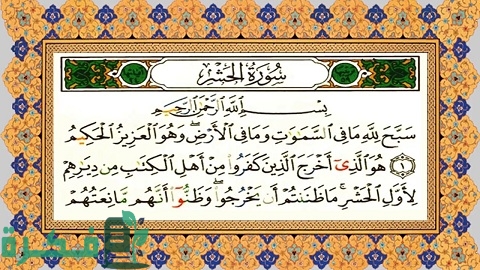 سُورَةُ الحَشْرِ
بِسْمِ اللَّهِ الرَّحْمَٰنِ الرَّحِيمِ
سَبَّحَ لِلَّهِ مَا فِى السَّمَٰوَٰتِ وَمَا فِى الْأَرْضِ ۖ وَهُوَ الْعَزِيزُ الْحَكِيمُ
١ هُوَ الَّذِىٓ أَخْرَجَ الَّذِينَ كَفَرُوا مِنْ أَهْلِ الْكِتَٰبِ مِن دِيَٰرِهِمْ
لِأَوَّلِ الْحَشْرِ ۚ مَا ظَنَنتُمْ أَن يَخْرُجُوا ۖ وَظَنُّوٓا أَنَّهُم مَّانِعَتُهُمْ
فكرة